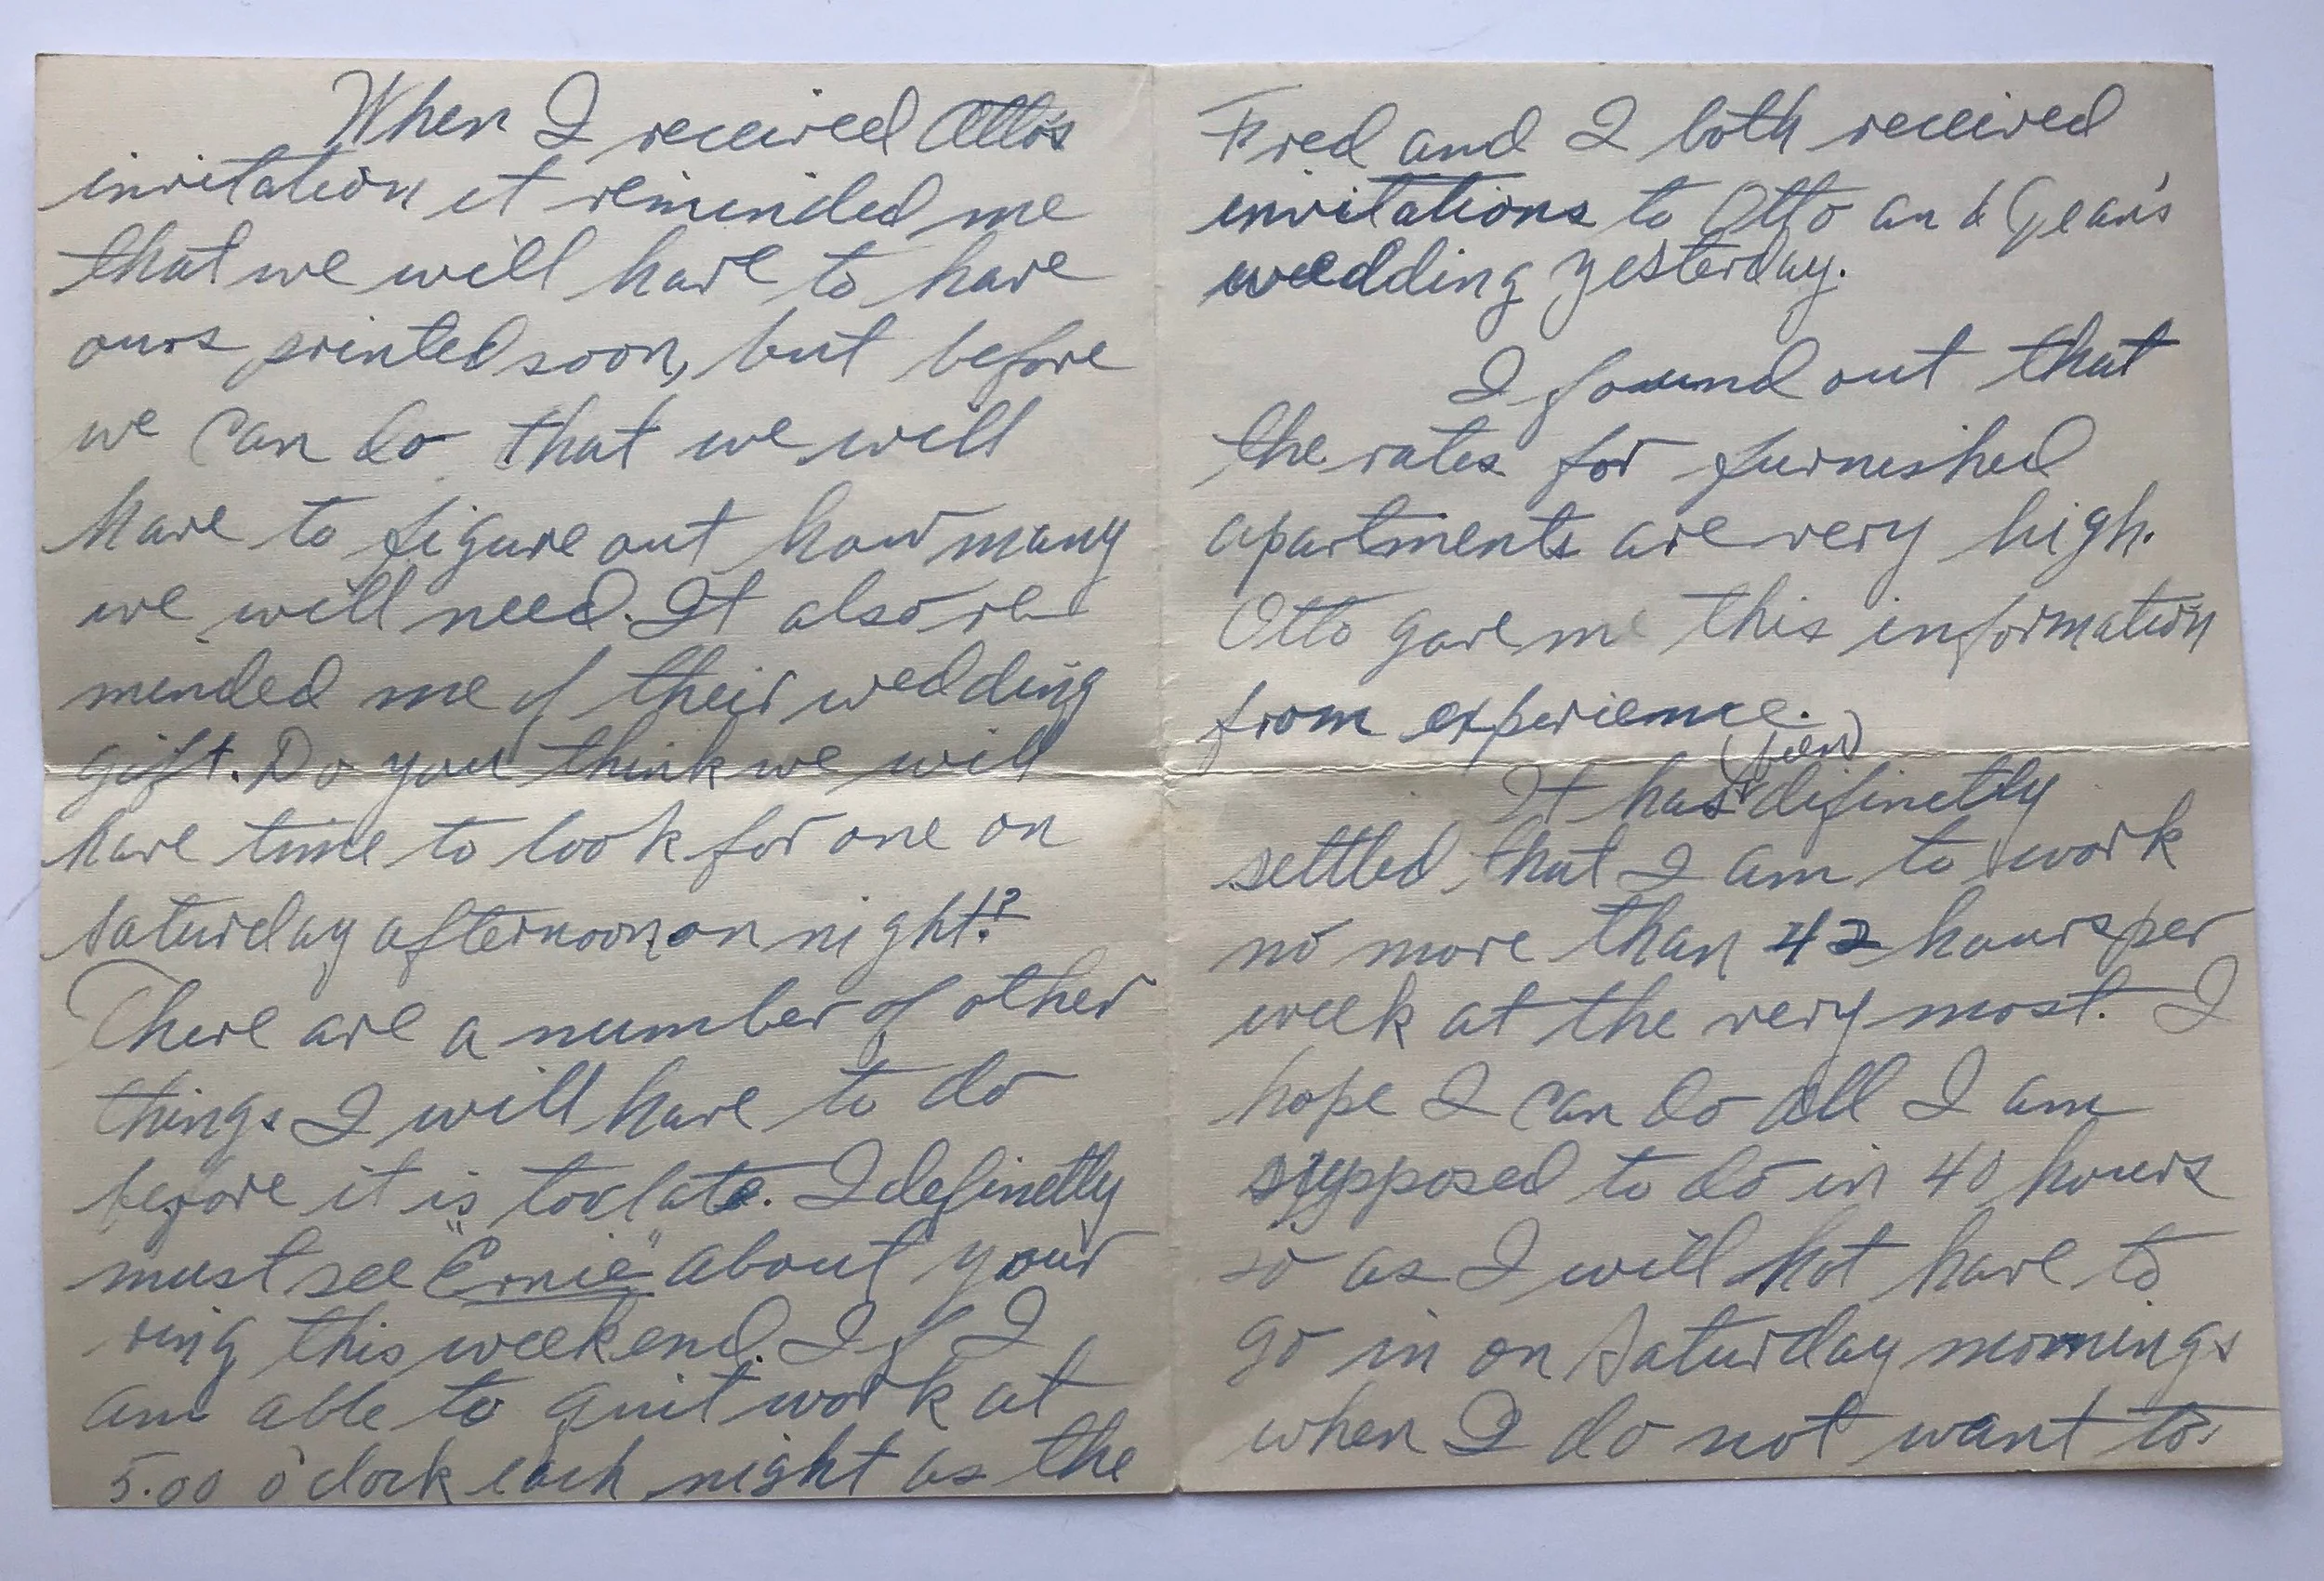 When I received Otto's
invitation it reminded me
that we will have to have
ours printed soon, but before
we can do that we will
have to figure out how many
we will need. It also re
minded me of their wedding
gift. Do you think we will
have time to look for one on
Saturday afternoon or night!?
There are a number of other
things I will have to do
before it is too late. I definetly
must see "Ernie" about your
ring this weekend. If I
am able to quit work at
5.00 o'clock each night as the
Fred and I both received
invitations to Otto and Gean's
wedding yesterday.
I found out that
the rates for furnished
apartments are very high.
Otto gave me this information
from experience.
(been)
It has difinetly
settled that I am to work
no more than 42 hours per
week at the very most. I
hope I can do all I am
supposed to do in 40 hours
so as I will not have to
go in on Saturday mornings
when I do not want to.